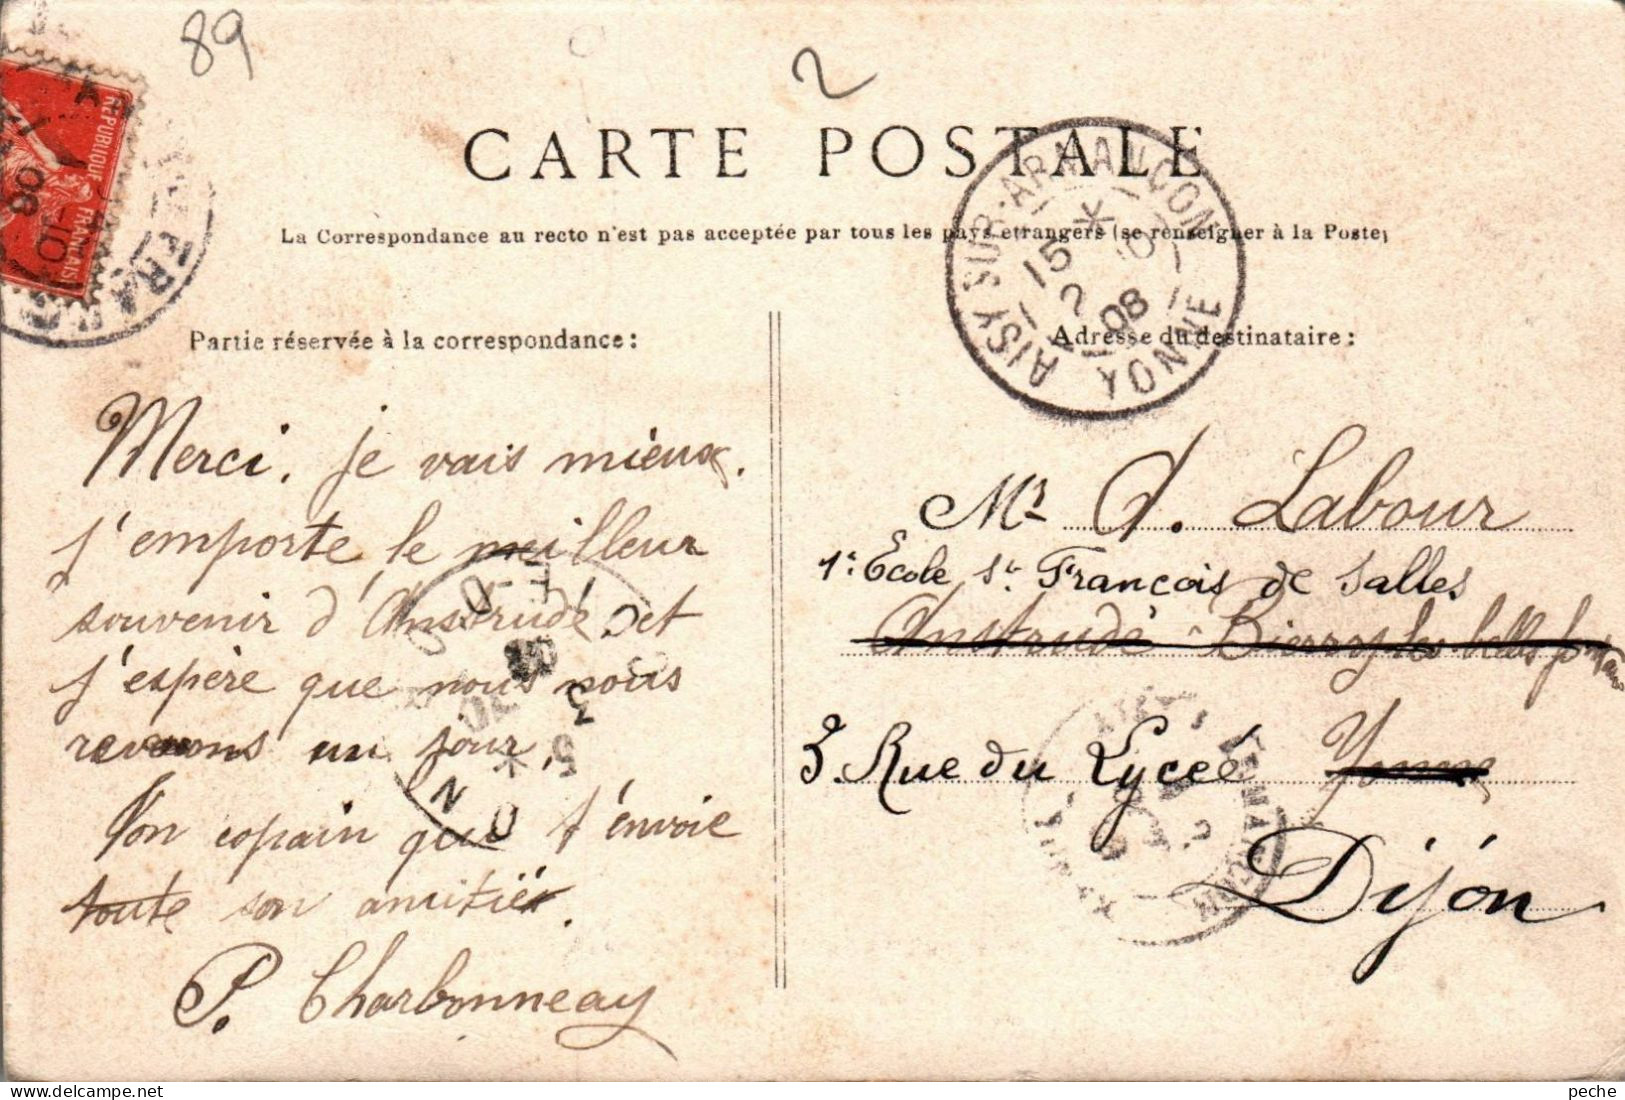 89
2
CARTE POSTALE
La Correspondance au recto n'est pas acceptée par tous les pays étrangers (se renseigner à la Poste)
RÉPUBLIQUE FRANÇAISE
AISY-SUR-ARMANÇON
15 * 2 10 08
YONNE
Partie réservée à la correspondance :
Merci, je vais mieux.
J'emporte le meilleur
souvenir d'Anstrude et
j'espère que nous nous
reverrons un jour.
Ton copain qui t'envoie
toute son amitié.
P. Charbonneau
Adresse du destinataire :
Mr A. Labour
1: École St François de Salles
Anstrude Bierry les belles fontaines
3. Rue du Lycée Yonne
Dijon
peche